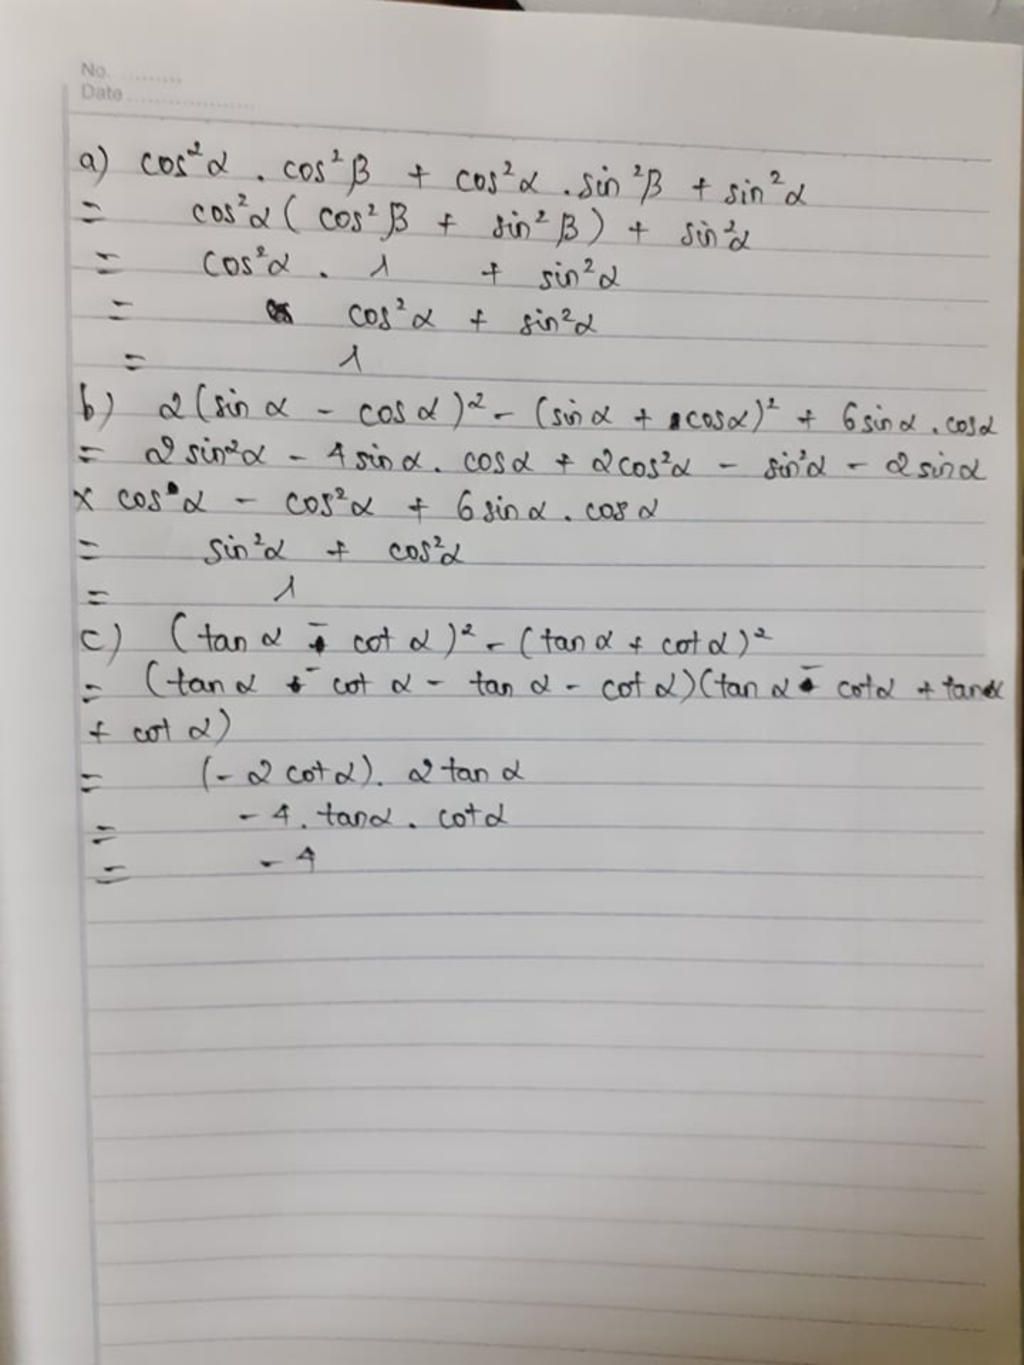 No. ..........
Date ....................
a) cos²α . cos²β + cos²α . sin²β + sin²α
= cos²α ( cos²β + sin²β ) + sin²α
= cos²α . 1 + sin²α
= cos²α + sin²α
= 1
b) 2 (sin α - cos α )² - (sin α + cosα)² + 6 sin α . cos α
= 2 sin²α - 4 sin α . cosα + 2 cos²α - sin²α - 2 sin α
x cos α - cos²α + 6 sin α . cos α
= sin²α + cos²α
= 1
c) (tan α - cot α )² - (tan α + cot α )²
= (tan α - cot α - tan α - cot α) (tan α - cotα + tanα
+ cot α )
= (- 2 cot α ) . 2 tan α
= - 4 . tanα . cotα
= - 4